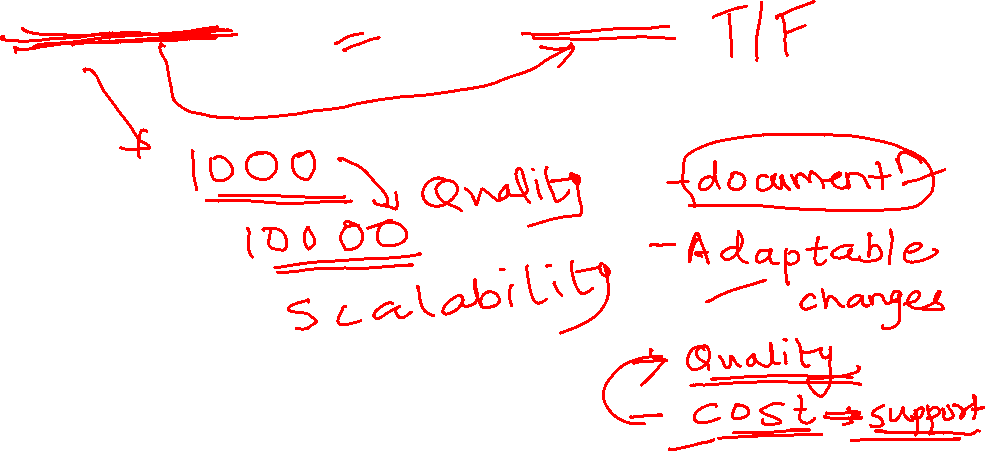 = T/F
1000
10000
Quality
Scalability
- document
- Adaptable
changes
Quality
cost ⇒ support